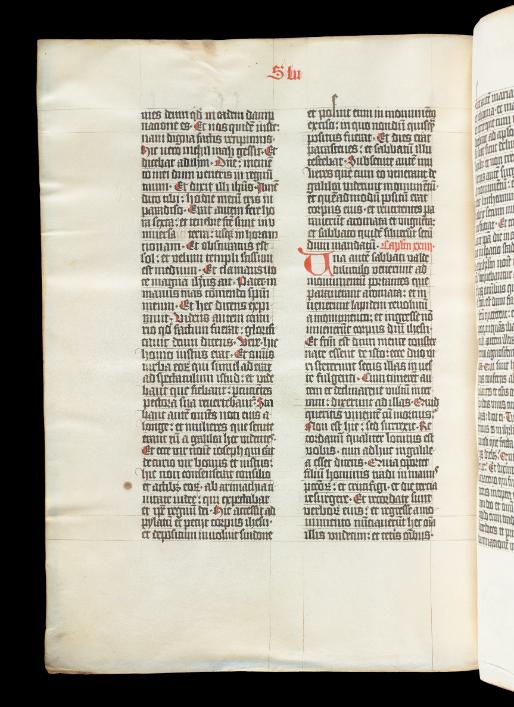 S lu
mes deum qd in eadem damp
natione es. Et nos quidē iuste:
nam digna factis recipimus.
Hic vero nichil mali gessit. Et
dicebat ad ihm. Dnē: memē
to mei dum veneris in regnū
tuum. Et dixit illi ihūs. Amē
dico tibi: hodie mecū eris in
paradiso. Erat autem fere ho
ra sexta: et tenebre fcē sunt in v
niversa terra: usq; in horam
nonam. Et obscuratus est
sol: et velum templi scissum
est medium. Et clamans vo
ce magna ihūs ait. Pater in
manus tuas cōmendo spūm
meum. Et hec dicens expi
ravit. Videns autem centu
rio qd factum fuerat: glorifi
cavit deum dicens. Vere hic
homo iustus erat. Et omīs
turba eoz qui simul aderāt
ad spectaculum istud: et vide
bant que fiebant: percutiētes
pectora sua revertebant. Sta
bant autē omēs noti eius a
longe: et mulieres que secute
erant eū a galilea hec vidētes.
Et ecce vir noīe ioseph qui erat
decurio vir bonus et iustus:
hic non consenserat consilio
et actibz eoz. ab arimathia ci
vitate iudee: qui expectabat
et ipē regnū dei. Hic accessit ad
pylatū et petijt corpus ihesu.
et depositum involvit sindone
et posuit eum in monumēto
exciso: in quo nondū quisq̄
positus fuerat. Et dies erat
parasceues: et sabbatū illu
cescebat. Subsecute autē mu
lieres que cum eo venerant de
galilea viderunt monumētū:
et quēadmodū positū erat
corpus eius. et revertentes pa
raverūt aromata et vnguēta:
et sabbato quidē siluerūt scdm
mandatū. Capłm xxiiij.
Una autē sabbati valde
diluculo venerunt ad
monumentū portantes que
paraverant aromata: et in
venerunt lapidem revolutū
a monumento: et ingresse nō
invenerūt corpus dnī ihesu.
Et fcm est dum mente conster
nate essent de isto: ecce duo vi
ri steterunt secus illas in ves
te fulgenti. Cum timerēt au
tem et declinarent vultū in ter
ram: dixerunt ad illas. Quid
queritis viventē cū mortuis:
Non est hic: sed surrexit. Re
cordamī qualiter locutus est
vobis. cum adhuc in galilea
esset dicens. Quia oportet
filiū hominis tradi in manus
pctōrz: et crucifigi. et die tercia
resurgere. Et recordate sunt
verborz eius: et regresse a mo
numento nūciaverūt hec oīa
illis vndecim: et ceteris oībus.